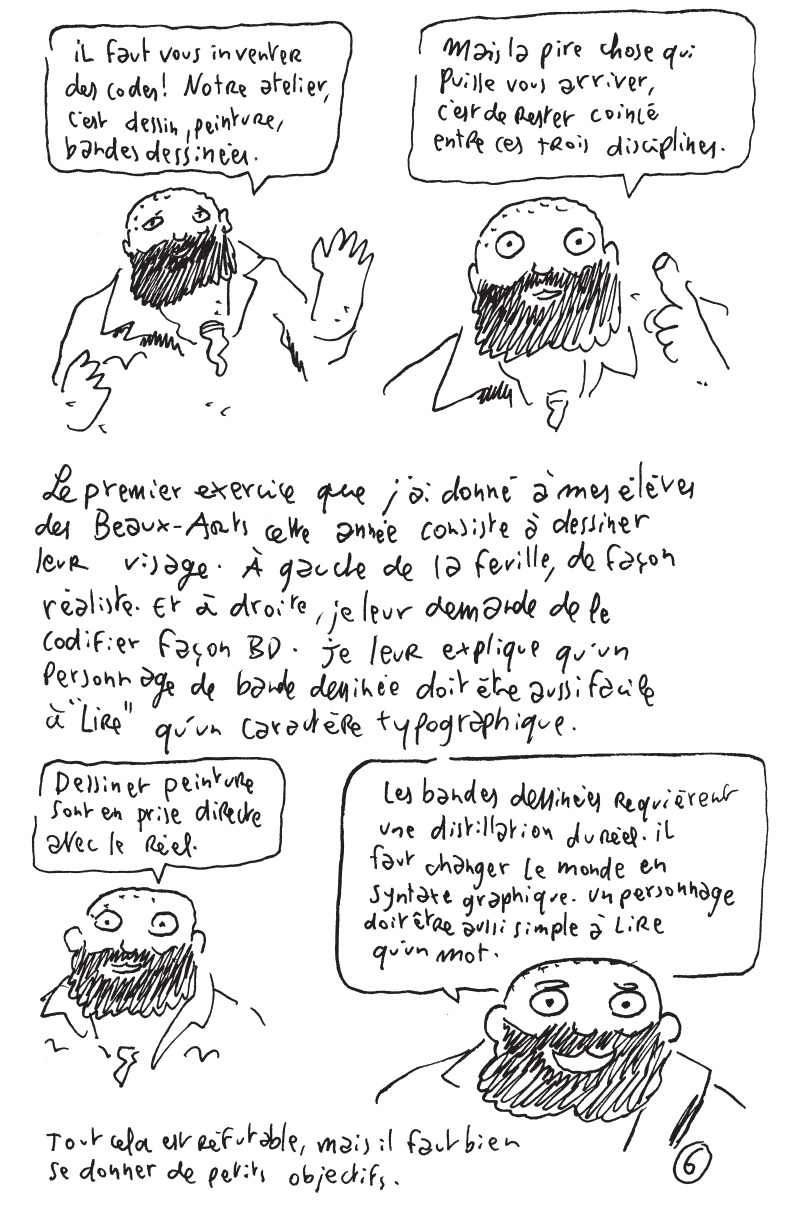 iL faut vous inventer
des codes! Notre atelier,
c'est dessin, peinture,
bandes dessinées.
Mais la pire chose qui
Puisse vous arriver,
c'est de Rester coincé
entre ces trois disciplines.
Le premier exercice que j'ai donné à mes élèves
des Beaux-Arts cette année consiste à dessiner
leur visage. À gauche de la feuille, de façon
réaliste. Et à droite, je leur demande de le
codifier façon BD. je leur explique qu'un
Personnage de bande dessinée doit être aussi facile
à "Lire" qu'un caractère typographique.
Dessin et peinture
sont en prise directe
avec le Réel.
Les bandes dessinées requièrent
une distillation du réel. il
faut changer le monde en
syntaxe graphique. un personnage
doit être aussi simple à LiRe
qu'un mot.
Tout cela est réfutable, mais il faut bien
se donner de petits objectifs.
6